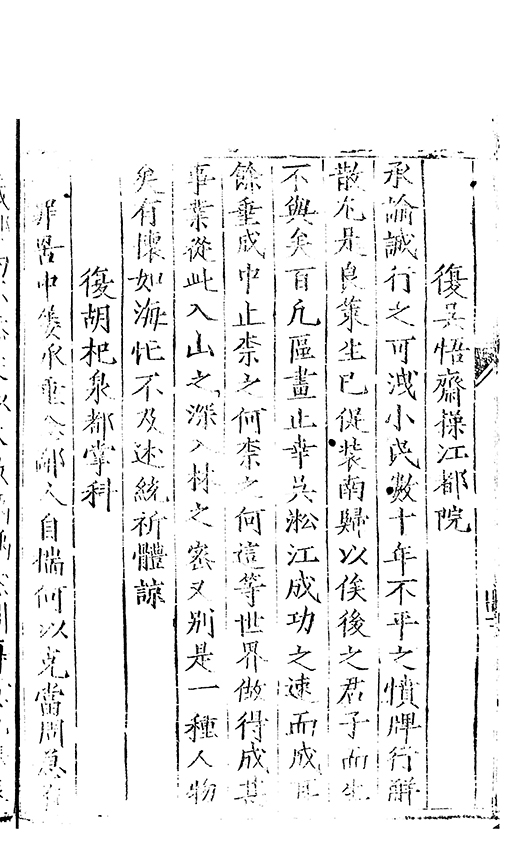 復吳悟齋操江都院
承諭誠行之可洩小民數十年不平之憤牌行解
散尤是良策生已促裝南歸以俟後之君子而生
不與矣百凡區畫止幸吳淞江成功之速而成耳
餘垂成中止柰之何柰之何這等世界做得成甚
事業從此入山之深入林之密又別是一種人物
矣有懷如海忙不及述統祈體諒
復胡杞泉都掌科
罪罟中獲承垂念鄙人自揣何以克當周急